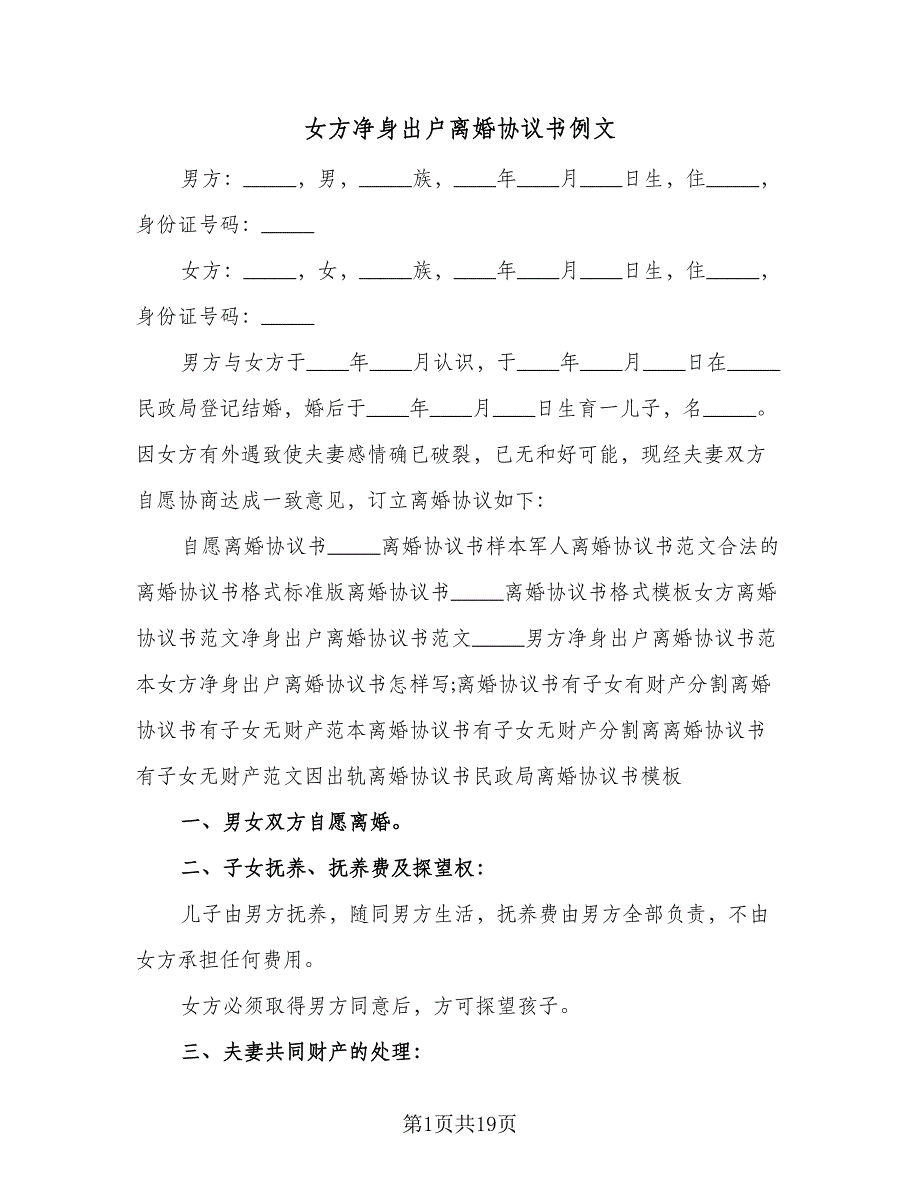 女方净身出户离婚协议书例文
男方：_____，男，_____族，____年____月____日生，住_____，
身份证号码：_____
女方：_____，女，_____族，____年____月____日生，住_____，
身份证号码：_____
男方与女方于____年____月认识，于____年____月____日在_____
民政局登记结婚，婚后于____年____月____日生育一儿子，名_____。
因女方有外遇致使夫妻感情确已破裂，已无和好可能，现经夫妻双方
自愿协商达成一致意见，订立离婚协议如下：
自愿离婚协议书_____离婚协议书样本军人离婚协议书范文合法的
离婚协议书格式标准版离婚协议书_____离婚协议书格式模板女方离婚
协议书范文净身出户离婚协议书范文_____男方净身出户离婚协议书范
本女方净身出户离婚协议书怎样写;离婚协议书有子女有财产分割离婚
协议书有子女无财产范本离婚协议书有子女无财产分割离离婚协议书
有子女无财产范文因出轨离婚协议书民政局离婚协议书模板
一、男女双方自愿离婚。
二、子女抚养、抚养费及探望权：
儿子由男方抚养，随同男方生活，抚养费由男方全部负责，不由
女方承担任何费用。
女方必须取得男方同意后，方可探望孩子。
三、夫妻共同财产的处理：
第1页共19页